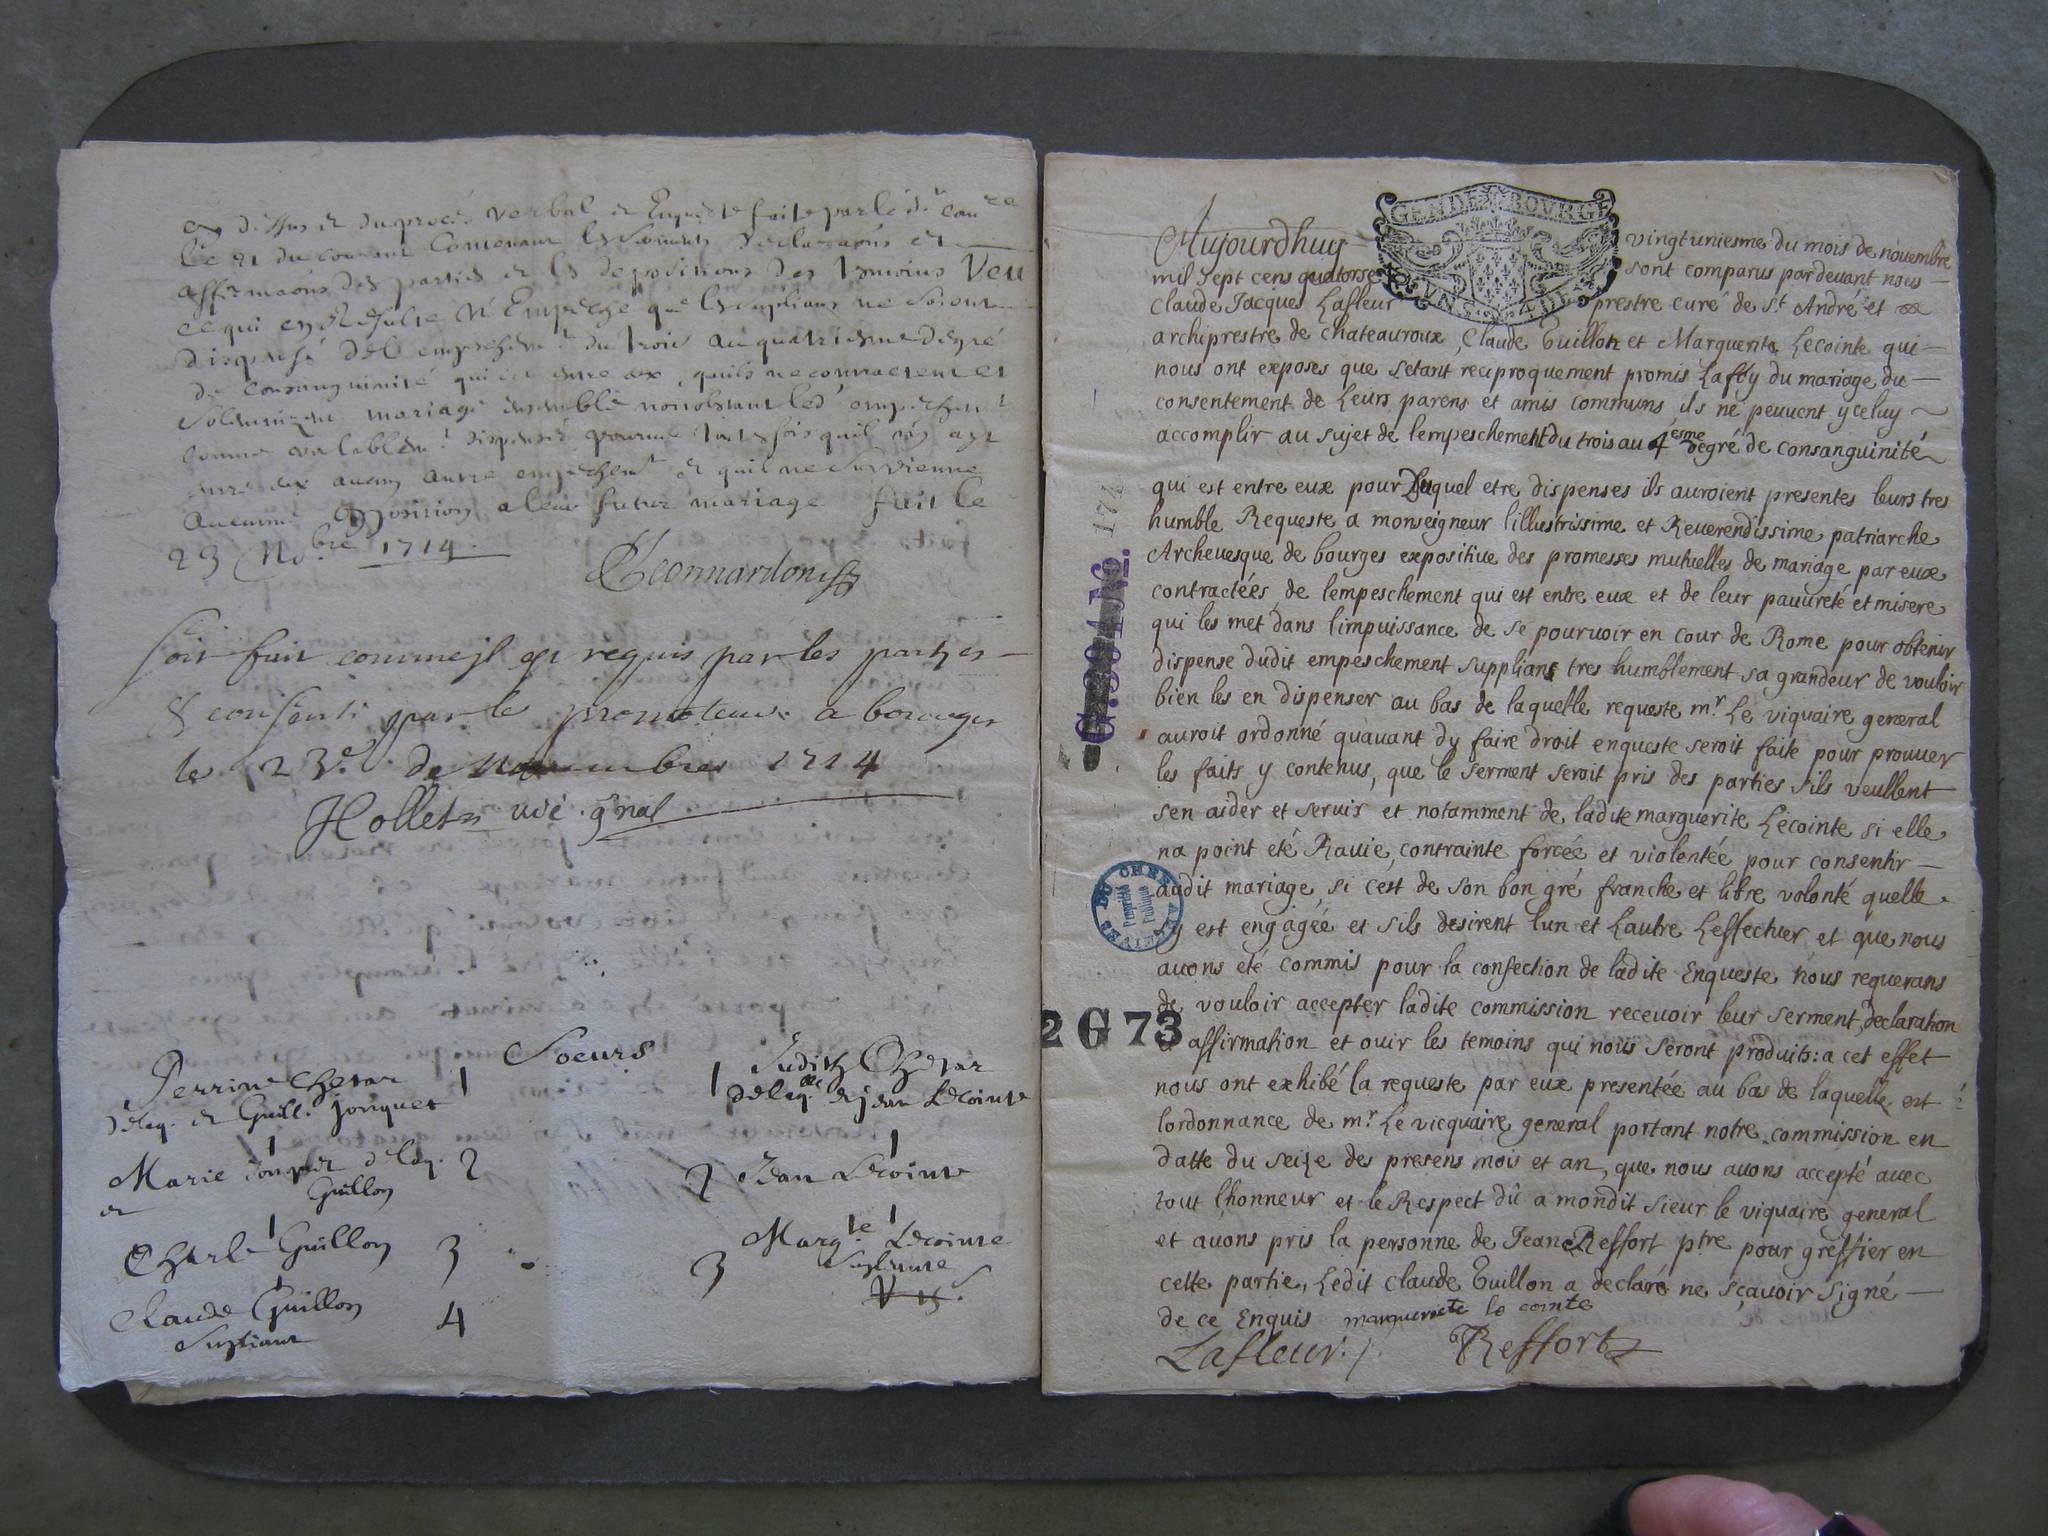 cy dessus et du procés verbal et Enqueste faite par le dt
le 21 du courant Contenant les serments declarations et
affirmaons des parties et les depositions des temoins Veu
ce qui en Resulte N'Empeche que les suplians ne soient
dispensé de l'empeschemt du trois au quatriesme degré
de consanguinité qui est entre eux, quils ne contractent et
solemnizent mariage ensemble nonobstant led' empechemt
comme valablemt dispensés pourveu toutesfois quil n'y ayt
entre eux aucun autre empechemt et quil ne survienne
aucunne opposition a leur futur mariage fait le
23 Nobre 1714
Soit fait comme jl est requis par les partyes
& consenti par le promoteur a bourges
le 23e de Novembre 1714
Hollet vic. gnal
Soeurs
Perrine Chenar
1
1
Judith Chenar
de Guill. jonquet
de jean Lecointe
1
1
Marie Jonquet
2
2
Jean Lecointe
Guillon
et
1
1
Charle Guillon
3
3
Margte Lecointe
Supliante
1
Claude Guillon
4
Supliant
GENDE BOVRGE
Aujourdhuy vingtuniesme du mois de novembre
mil sept cens quatorse sont comparus pardevant nous
Claude Jacques Lafleur prestre curé de St André et
archiprestre de chateauroux, Claude Guillon et Marguerite Lecointe qui
nous ont exposes que setant reciproquement promis La foy du mariage du
consentement de Leurs parens et amis communs ils ne peuvent yceluy
accomplir au sujet de lempeschement du trois au 4esme degré de consanguinité
qui est entre eux pour Duquel etre dispenses ils auroient presentes leurs tres
humble Requeste a monseigneur lillustrissime et Reverendissime patriarche
Archevesque de bourges expositive des promesses mutuelles de mariage par eux
contractées de lempeschement qui est entre eux et de leur pauvreté et misere
qui les met dans limpuissance de se pourvoir en cour de Rome pour obtenir
dispense dudit empeschement supplians tres humblement sa grandeur de vouloir
bien les en dispenser au bas de laquelle requeste mr Le viquaire general
auroit ordonné quavant dy faire droit enqueste seroit faite pour prouver
les faits y contenus, que le serment seroit pris des parties sils veullent
sen aider et servir et notamment de ladite marguerite Lecointe si elle
na point été Ravie, contrainte forcée et violentée pour consentir
audit mariage, si cest de son bon gré franche et libre volonté quelle
y est engagée et sils desirent lun et Lautre Leffectuer et que nous
avons été commis pour la confection de ladite Enqueste nous requerans
de vouloir accepter ladite commission recevoir leur serment, declaration
et affirmation et ouir les temoins qui nous seront produits: a cet effet
nous ont exhibé la requeste par eux presentée au bas de laquelle est
lordonnance de mr Le vicquaire general portant notre commission en
datte du seize des presens mois et an, que nous avons accepté avec
tout lhonneur et le Respect dû a mondit sieur le viquaire general
et avons pris la personne de Jean Reffort ptre pour greffier en
cette partie, Ledit Claude Guillon a declaré ne sçavoir signé
de ce Enquis marguerite le cointe
Lafleur Reffort
ARCHIVES DU CHER
Propriété
Publique
2 G 73